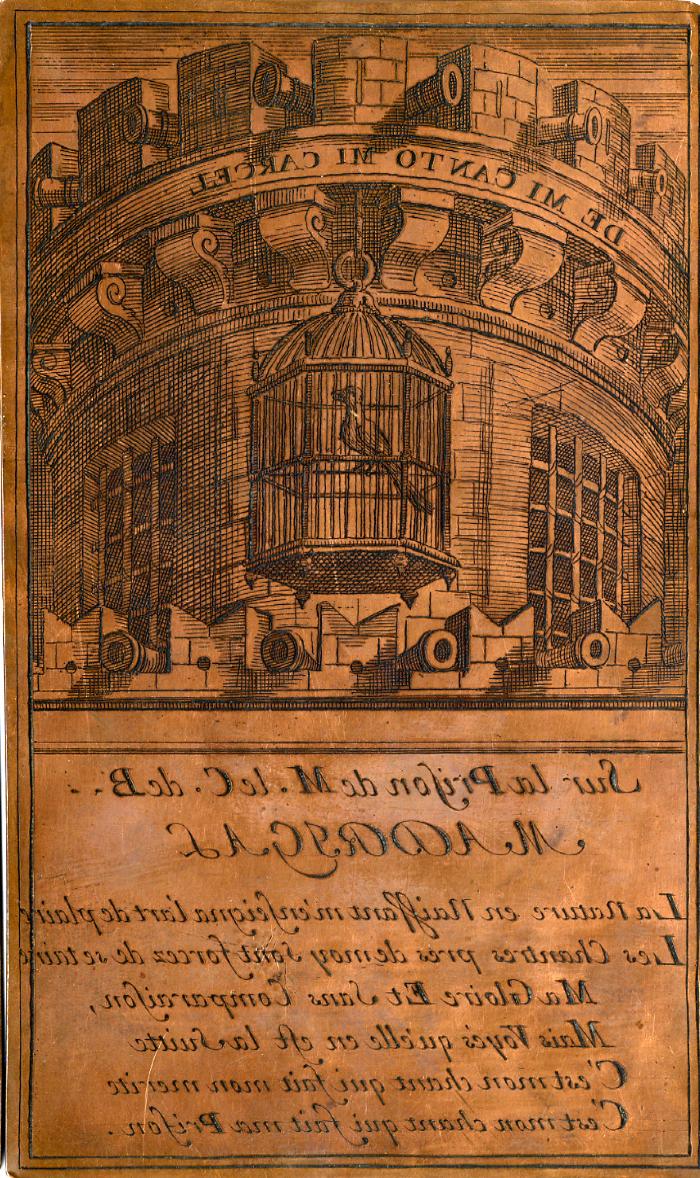 DE MI CANTO MI CARCEL
Sur la Prison de M. le C. de B.
MADRIGAL
La Nature en Naissant m'enseigna l'art de plaire
Les Chantres pres de moy sont forcez de se taire
Ma Gloire Et Sans Comparaison,
Mais Voyés qu'elle en est la Suitte
C'est mon chant qui fait mon merite
C'est mon chant qui fait ma Prison.